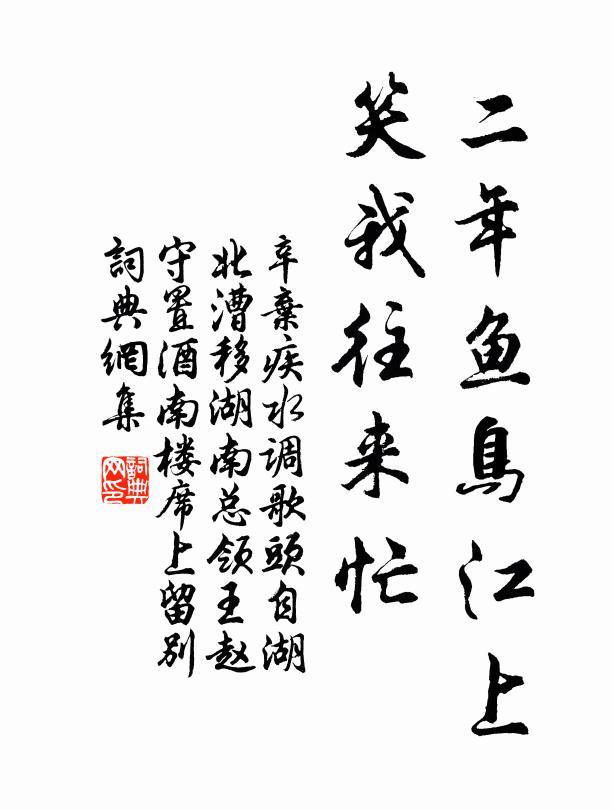 二年鱼鸟江上
笑我往来忙
辛棄疾水调歌頭自湖
北漕移湖南总领王赵
守置酒南楼席上留别
詞典網集
詞典
网印